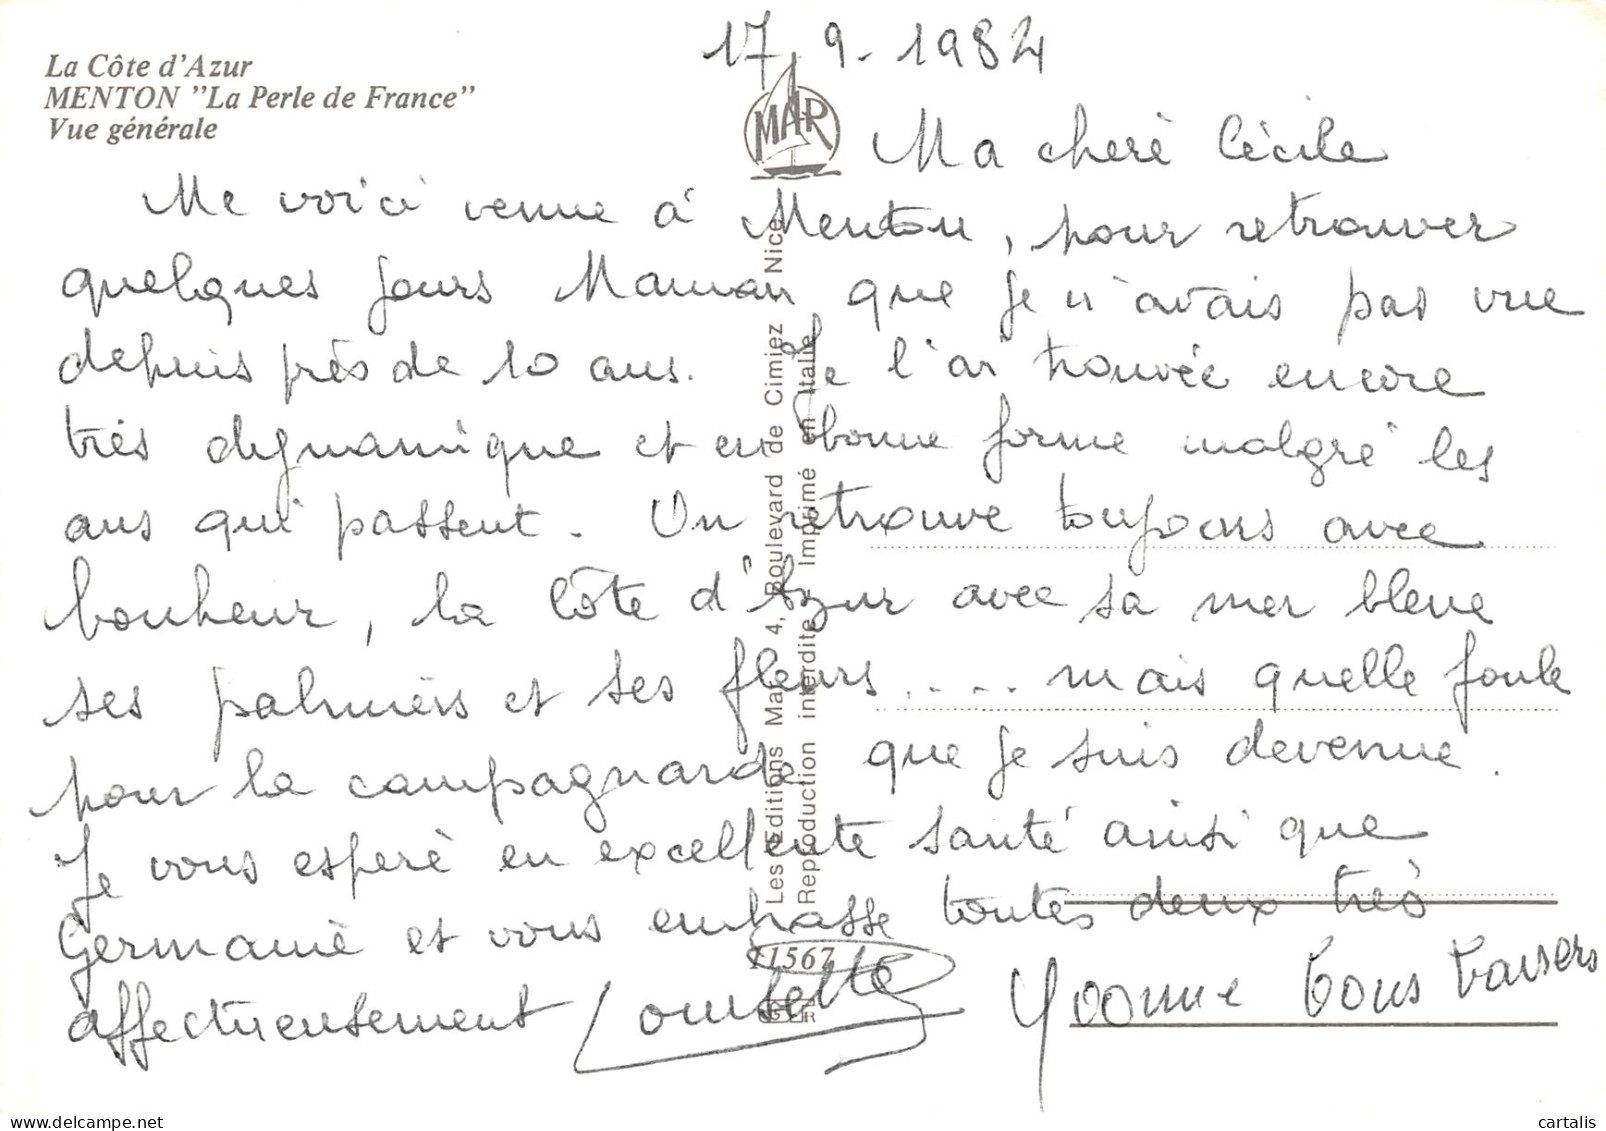 La Côte d'Azur
MENTON "La Perle de France"
Vue générale
17.9.1984
MAR
Ma cherè Cécile
Me voici venue à Menton, pour retrouver
quelques jours Maman que je n'avais pas vue
depuis près de 10 ans. Je l'ai trouvée encore
très dynamique et en bonne forme malgré les
ans qui passent. On retrouve toujours avec
bonheur, la Côte d'Azur avec sa mer bleue
ses palmiers et ses fleurs.... mais quelle foule
pour la campagnarde que je suis devenue.
Je vous esperè en excellente santé ainsi que
Germanie et vous embrasse toutes deux très
affectueusement Louisette
Yvonne bons baisers
Les Editions Mar, 4, Boulevard de Cimiez Nice
Reproduction interdite Imprimé en Italie
11567
cartalis
www.delcampe.net